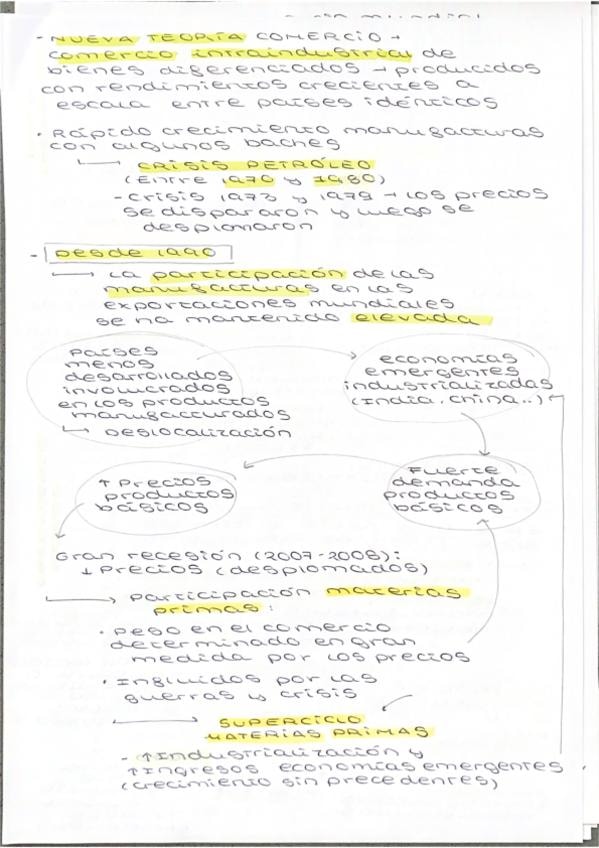 - NUEVA TEORÍA COMERCIO →
comercio intraindustrial de
bienes diferenciados → producidos
con rendimientos crecientes a
escala entre países idénticos
· Rápido crecimiento manufacturas
con algunos baches
↳ CRISIS PETRÓLEO
(Entre 1970 y 1980)
- Crisis 1973 y 1979 → los precios
se dispararon y luego se
desplomaron
- Desde 1990
↳ La participación de las
manufacturas en las
exportaciones mundiales
se ha mantenido elevada
países
menos
desarrollados
involucrados
en los productos
manufacturados
↳ Deslocalización
economías
emergentes
industrializadas
(India, China..)
Fuerte
demanda
productos
básicos
↑ Precios
productos
básicos
Gran recesión (2007-2008):
↓ Precios (desplomados)
→ participación materias
primas:
· peso en el comercio
determinado en gran
medida por los precios
· Influidos por las
guerras y crisis
→ SUPERCICLO
MATERIAS PRIMAS
- ↑Industrialización y
↑Ingresos economías emergentes
(crecimiento sin precedentes)